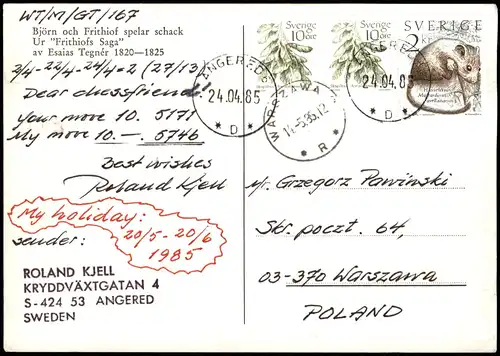 WT/M/GT/167
Björn och Frithiof spelar schack
Ur "Frithiofs Saga"
av Esaias Tegnér 1820—1825
2/4-22/4-24/4=2 (27/13)
Dear chessfriend!
your move 10. 5171
My move 10. —. 5746
Best wishes
Roland Kjell
My holiday:
20/5 - 20/6
1985
sender:
ROLAND KJELL
KRYDDVÄXTGATAN 4
S-424 53 ANGERED
SWEDEN
Sverige
10 öre
Sverige
10 öre
SVERIGE
2 KR
Hasselmus
ANGERED
24.04.85
* D *
WARSZAWA
14.-5.85.12
* R *
ANGERED
24.04.85
* D *
Mr. Grzegorz Pawiński
Skr. poczt. 64,
03-370 Warszawa
POLAND